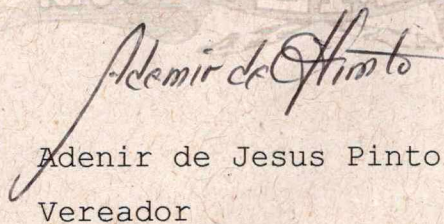 Adenir de J Pinto
Adenir de Jesus Pinto
Vereador